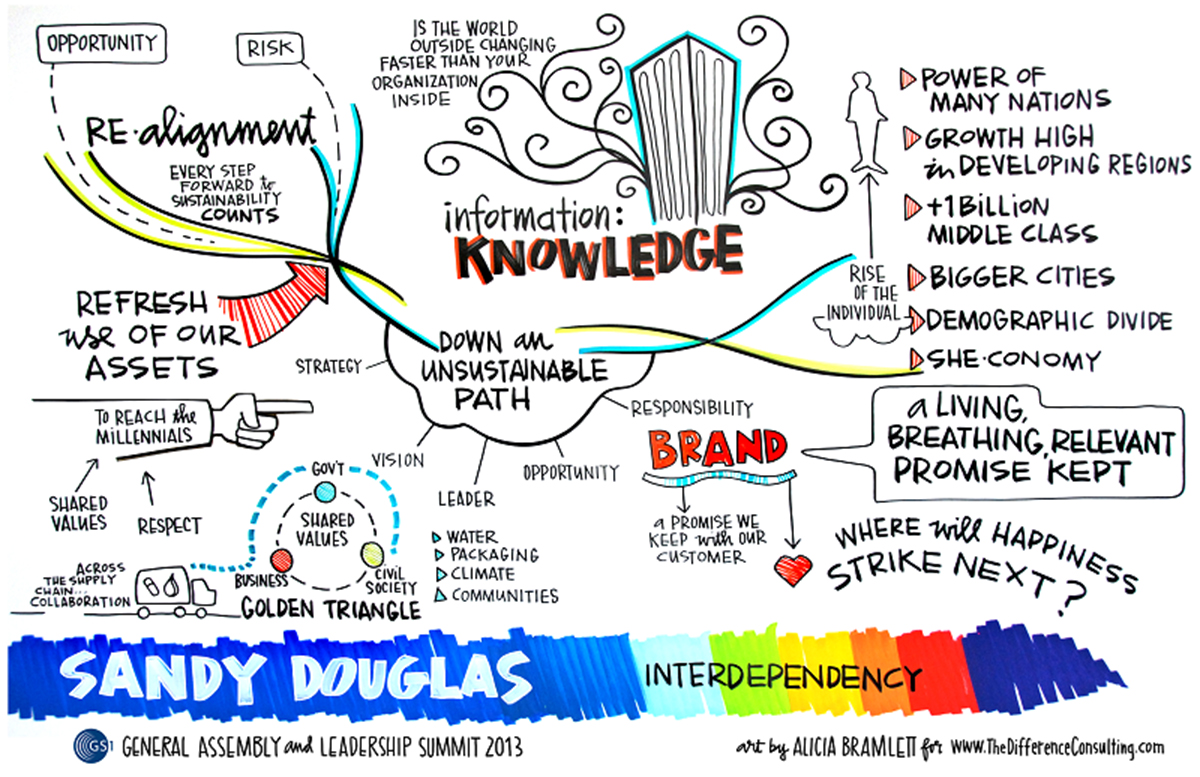 OPPORTUNITY
RISK
RE·alignment
EVERY STEP
FORWARD to
SUSTAINABILITY
COUNTS
IS THE WORLD
OUTSIDE CHANGING
FASTER THAN YOUR
ORGANIZATION
INSIDE
information:
KNOWLEDGE
POWER OF
MANY NATIONS
GROWTH HIGH
in DEVELOPING REGIONS
+1 BILLION
MIDDLE CLASS
BIGGER CITIES
DEMOGRAPHIC DIVIDE
SHE·CONOMY
RISE
OF THE
INDIVIDUAL
REFRESH
use OF OUR
ASSETS
DOWN an
UNSUSTAINABLE
PATH
STRATEGY
VISION
LEADER
OPPORTUNITY
RESPONSIBILITY
WATER
PACKAGING
CLIMATE
COMMUNITIES
TO REACH the
MILLENNIALS
SHARED
VALUES
RESPECT
ACROSS
THE SUPPLY
CHAIN...
COLLABORATION
GOV'T
SHARED
VALUES
BUSINESS
CIVIL
SOCIETY
GOLDEN TRIANGLE
BRAND
a PROMISE WE
KEEP with OUR
CUSTOMER
a LIVING,
BREATHING, RELEVANT
PROMISE KEPT
WHERE will HAPPINESS
STRIKE NEXT?
SANDY DOUGLAS
INTERDEPENDENCY
GS1 GENERAL ASSEMBLY and LEADERSHIP SUMMIT 2013
art by ALICIA BRAMLETT for www.TheDifferenceConsulting.com